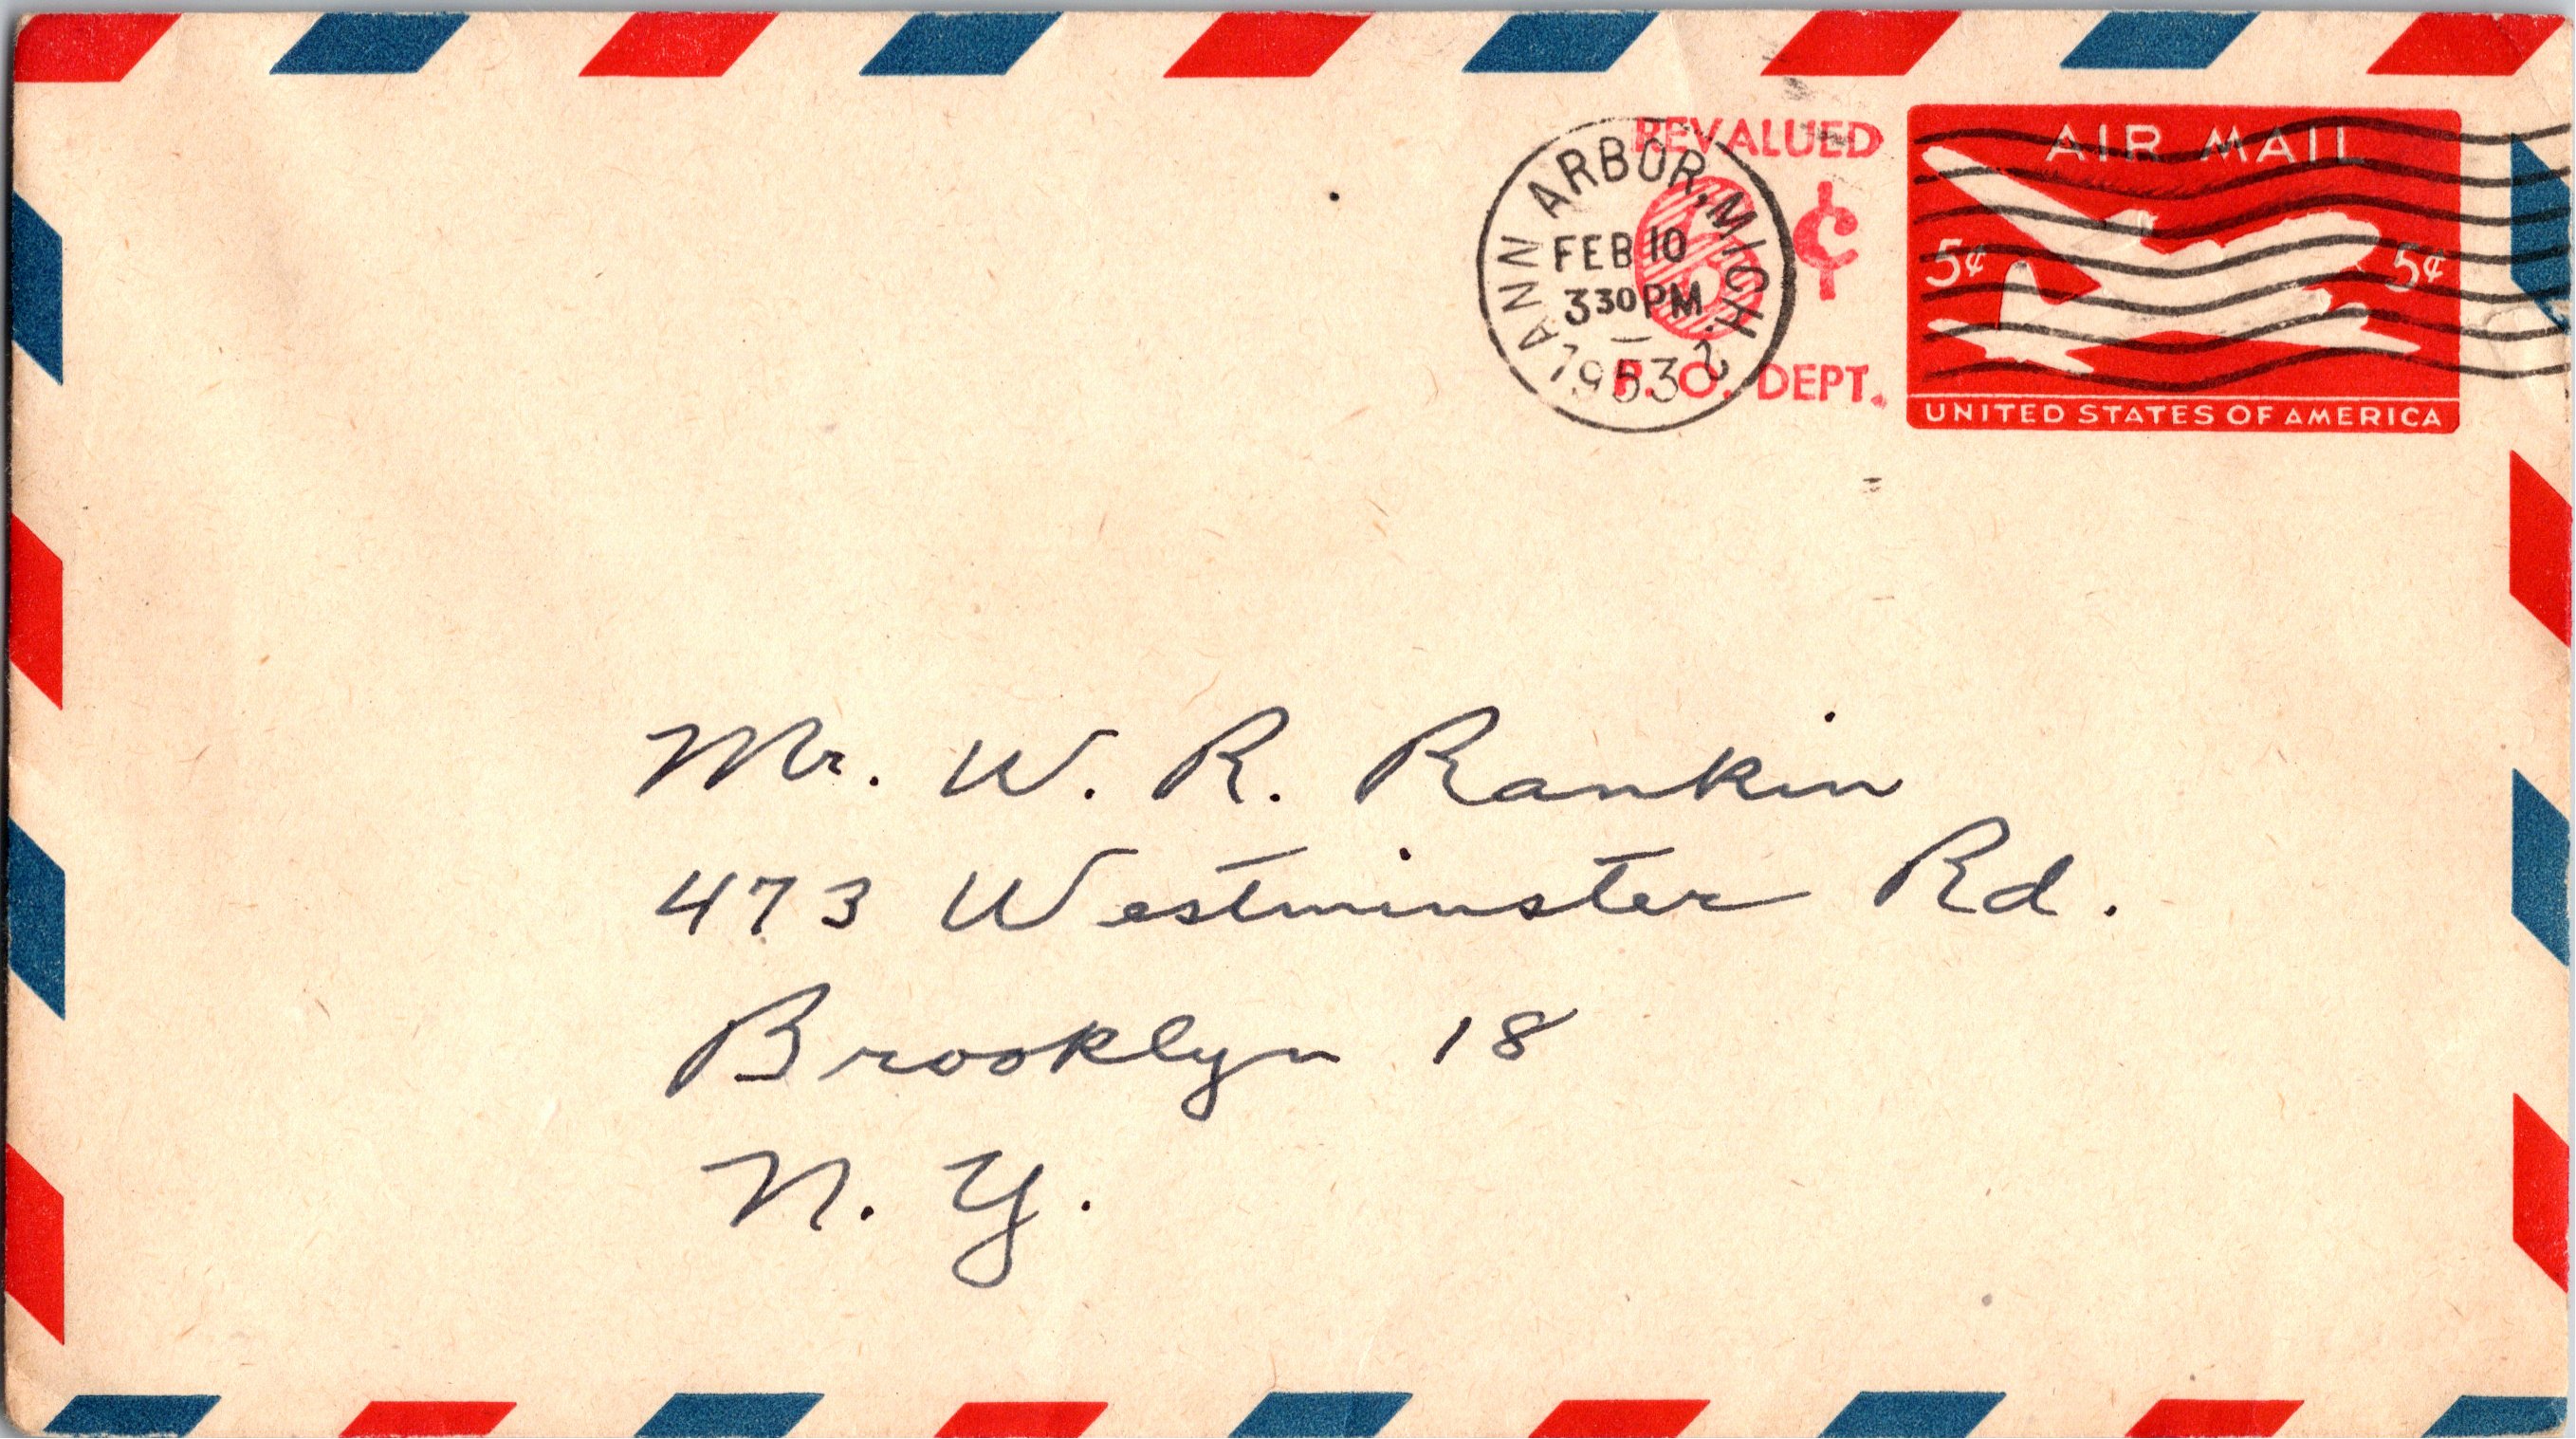 ANN ARBOR, MICH. 2
FEB 10
3 30 PM
1953
REVALUED
6 ¢
P. O. DEPT.
AIR MAIL
5¢ 5¢
UNITED STATES OF AMERICA
Mr. W. R. Rankin
473 Westminster Rd.
Brooklyn 18
N. Y.